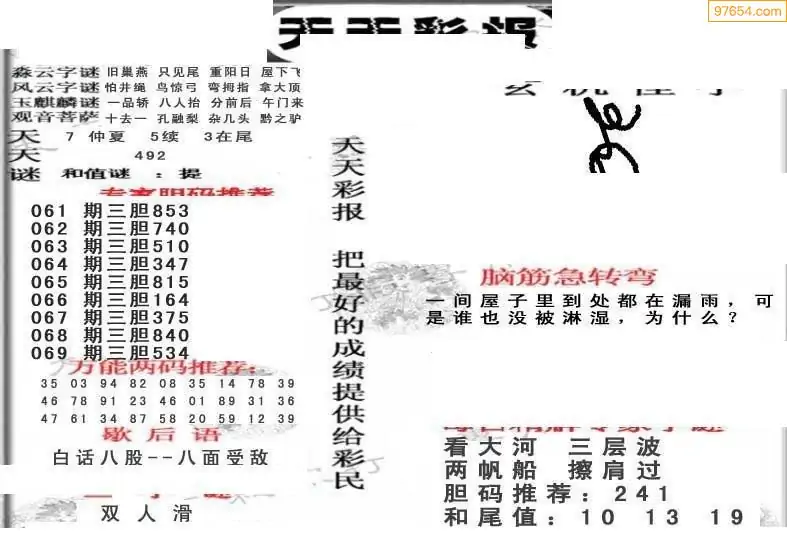 97654.com
天天彩报
淼云字谜 旧巢燕 只见尾 重阳日 屋下飞
风云字谜 怕井绳 鸟惊弓 弯拇指 拿大顶
玉麒麟谜 一品轿 八人抬 分前后 午门来
观音菩萨 十去一 孔融梨 杂几头 黔之驴
天 7 仲夏 5续 3在尾
天 492
谜 和值谜 : 提
专家胆码推荐
061 期三胆853
062 期三胆740
063 期三胆510
064 期三胆347
065 期三胆815
066 期三胆164
067 期三胆375
068 期三胆840
069 期三胆534
万能两码推荐:
35 03 94 82 08 35 14 78 39
46 78 91 23 46 01 89 31 36
47 61 34 87 58 20 59 12 39
歇后语
白话八股--八面受敌
双人滑
天天彩报 把最好的成绩提供给彩民
脑筋急转弯
一间屋子里到处都在漏雨，可
是谁也没被淋湿，为什么？
看大河 三层波
两帆船 擦肩过
胆码推荐：241
和尾值：10 13 19